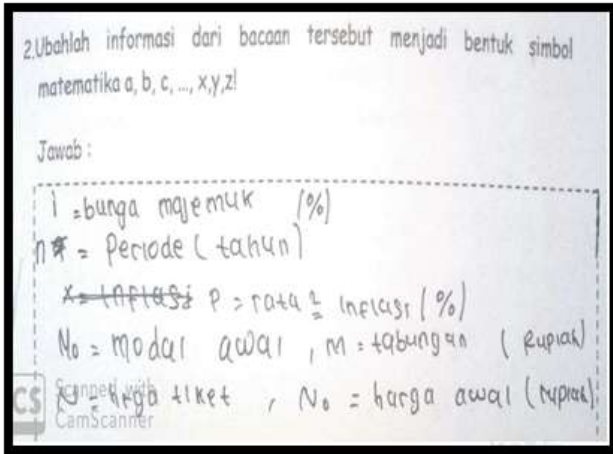 2.Ubahlah informasi dari bacaan tersebut menjadi bentuk simbol
matematika a, b, c, ..., x,y,z!
Jawab :
i = bunga majemuk (%)
n = Periode (tahun)
x = inflasi P = rata2 inflasi (%)
No = modal awal , M = tabungan (Rupiah)
N = hrga tiket , No = harga awal (rupiah)
CS Scanned with
CamScanner